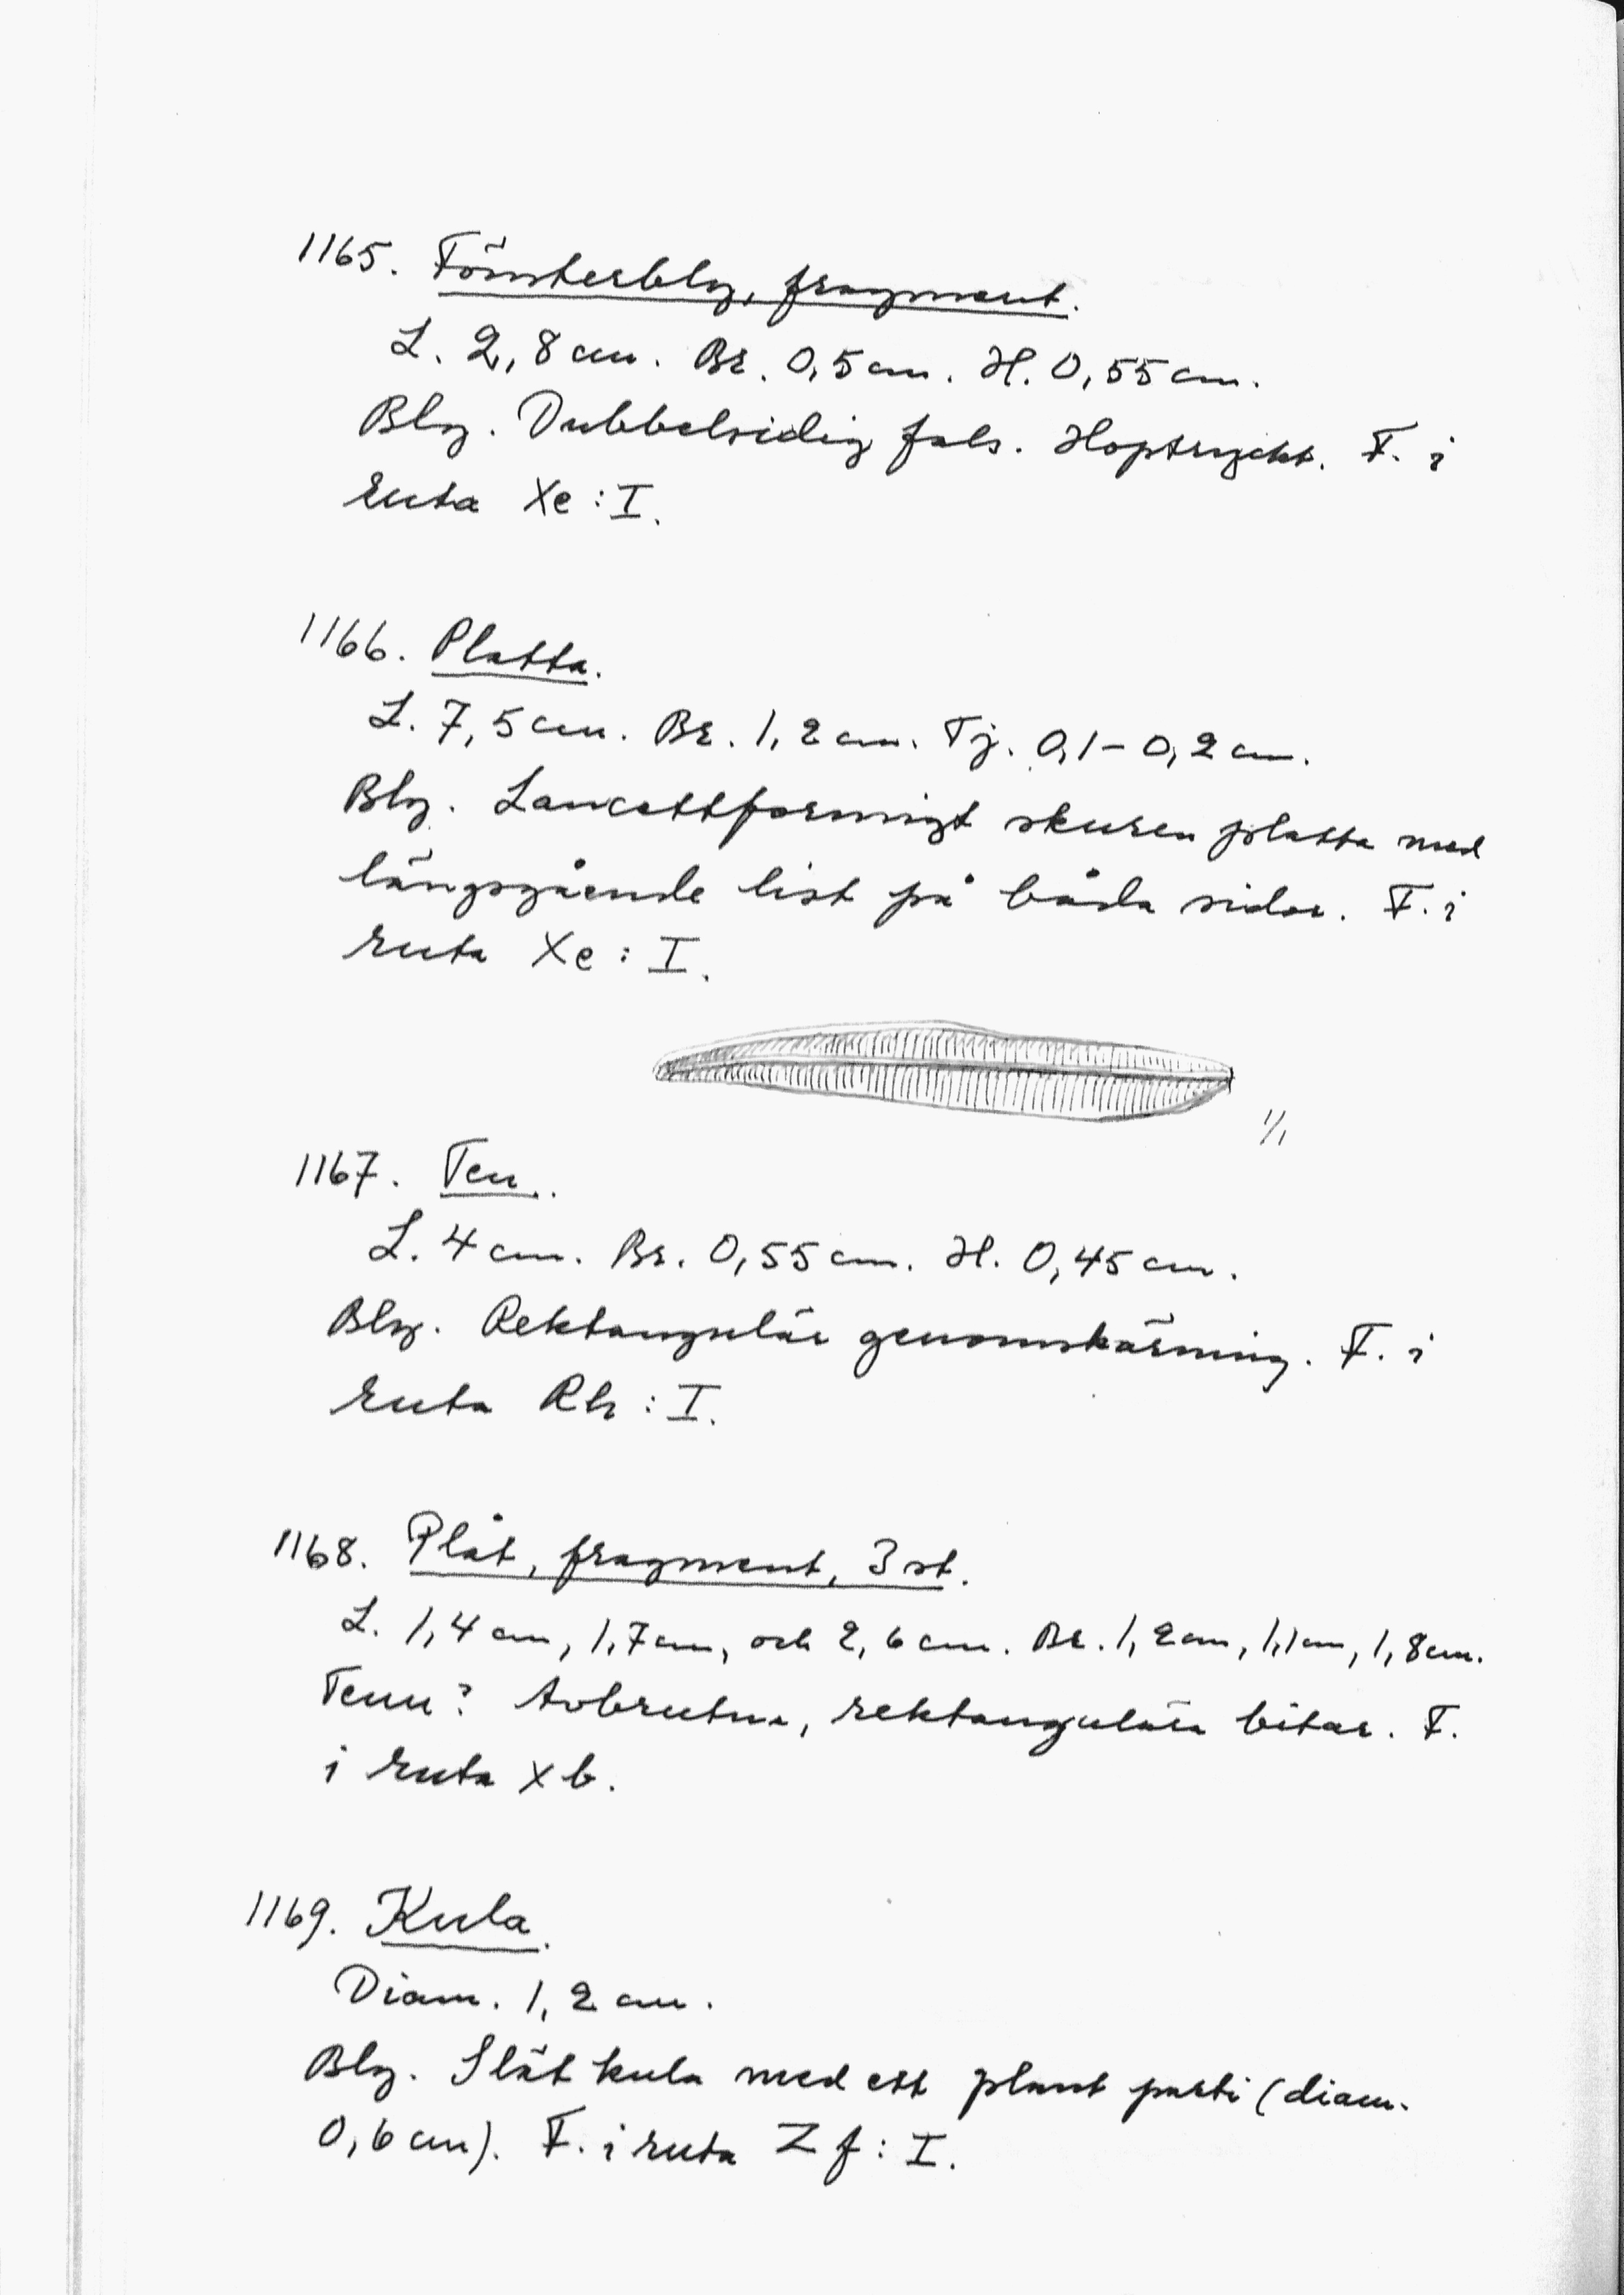 1165. Fönsterbly, fragment.
L. 2,8 cm. Br. 0,5 cm. H. 0,55 cm.
Bly. Dubbelsidig fals. Hoptryckt. F. i
ruta Xe : I.
1166. Platta.
L. 7,5 cm. Br. 1,2 cm. Tj. 0,1 - 0,2 cm.
Bly. Lancettformigt skuren platta med
längsgående list på båda sidor. F. i
ruta Xe : I.
1/1
1167. Ten.
L. 4 cm. Br. 0,55 cm. H. 0,45 cm.
Bly. Rektangulär genomskärning. F. i
ruta Rh : I.
1168. Plåt, fragment, 3 st.
L. 1,4 cm, 1,7 cm, och 2,6 cm. Br. 1,2 cm, 1,1 cm, 1,8 cm.
Tenn? Avbrutna, rektangulära bitar. F.
i ruta Xb.
1169. Kula.
Diam. 1,2 cm.
Bly. Slät kula med ett plant parti (diam.
0,6 cm). F. i ruta Zf : I.